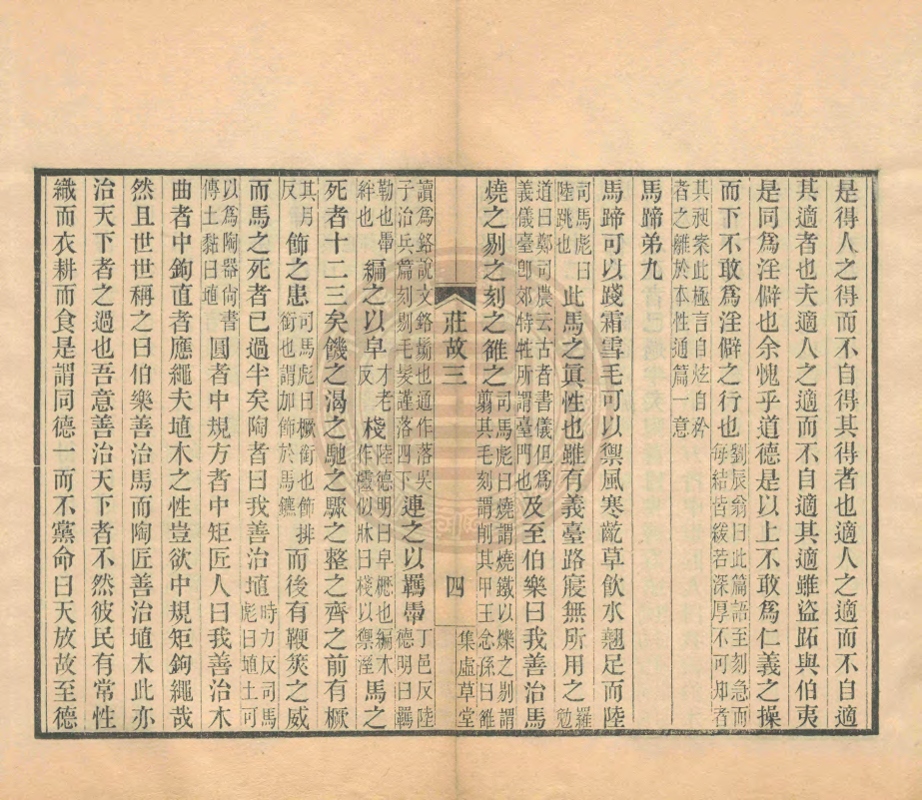 是得人之得而不自得其得者也適人之適而不自適
其適者也夫適人之適而不自適其適雖盜跖與伯夷
是同爲淫僻也余愧乎道德是以上不敢爲仁義之操
而下不敢爲淫僻之行也劉辰翁曰此篇語至刻急而每結皆緩若深厚不可知者
其昶案此極言自炫自矜者之離於本性通篇一意
馬蹄弟九
馬蹄可以踐霜雪毛可以禦風寒齕草飲水翹足而陸
司馬彪曰陸跳也此馬之眞性也雖有義臺路寢無所用之羅勉
道曰鄭司農云古者書儀但爲義儀臺卽郊特牲所謂臺門也及至伯樂曰我善治馬
燒之剔之刻之雒之司馬彪曰燒謂燒鐵以爍之剔謂翦其毛刻謂削其甲王念孫曰雒
莊故三 四 集虛草堂
讀爲鉻說文鉻鬄也通作落吳子治兵篇刻剔毛髮謹落四下連之以羈馽丁邑反陸德明曰羈
勒也馽絆也編之以皁才老反棧陸德明曰皁櫪也編木作櫺似牀曰棧以禦溼馬之
死者十二三矣饑之渴之馳之驟之整之齊之前有橛
其月反飾之患司馬彪曰橛銜也飾排銜也謂加飾於馬鑣而後有鞭筴之威
而馬之死者已過半矣陶者曰我善治埴時力反司馬彪曰埴土可
以爲陶器尙書傳土黏曰埴圓者中規方者中矩匠人曰我善治木
曲者中鉤直者應繩夫埴木之性豈欲中規矩鉤繩哉
然且世世稱之曰伯樂善治馬而陶匠善治埴木此亦
治天下者之過也吾意善治天下者不然彼民有常性
織而衣耕而食是謂同德一而不黨命曰天放故至德